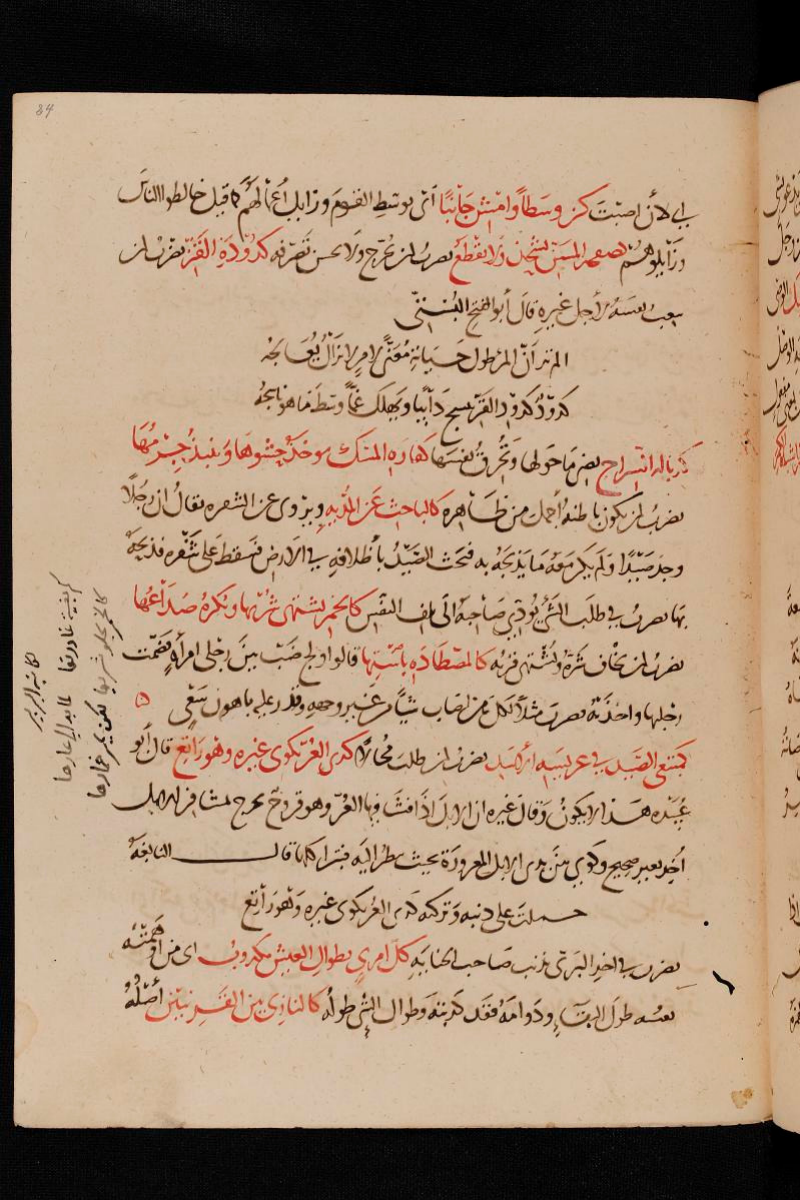 84
لأن أصبت كن وسطا وامش جانبا أي توسط القوم وزايل أعمالهم كما قيل خالطوا الناس
وزايلوهم كصفيحة المسن تشحذ ولا تقطع يضرب لمن يخرج ولا يحسن تصرفه كدودة القز يضرب لمن
يتعب نفسه لأجل غيره قال أبو الفتح البستي
الم تر أن المرء طول حياته معنى لامر لا يزال يعالجه
كدود كدود القز ينسج دائبا ويهلك غما وسط ما هو ناسجه
كذبالة السراج يضيء ما حولها وتحرق نفسها كفارة المسك يوخذ حشوها وينبذ جرمها
يضرب لمن يكون باطنه أجمل من ظاهره كالباحث عن المدية ويروى عن الشفرة يقال ان رجلا
وجد صيدا ولم يكن معه ما يذبحه به فبحث الصيد بأظلافه في الارض فسقط على شفرة فذبحه
بها يضرب في طلب الشيء يؤدي صاحبه الى تلف النفس كالخمر يشتهى شربها ويكره صداعها
يضرب لمن يخاف شره ويشتهى قربه كالمصطادة باستها قالوا ولج ضب بين رجلي امرأة فضمت
رجليها واخذته يضرب مثلا لكل من اصاب شيأ من غير وجهه وقدر عليه باهون سعي
كمبتغي الصيد في عريسة الاسد يضرب لمن طلب محالا كذي العر يكوى غيره وهو راتع قال أبو
عبيدة هذا لا يكون وقال غيره ان الابل اذا فشا فيها العر وهو قروح تخرج بمشافر الابل
أخذ بعير صحيح وكوي بين يدي الابل المعرورة بحيث تنظر اليه فتبرأ كلها قال النابغة
حملت على ذنبه وتركته كذي العر يكوى غيره وهو راتع
يضرب في اخذ البري بذنب صاحب الجناية كل امرئ بطوال العيش مكذوب اي من أوهمته
نفسه طول البقاء ودوامه فقد كذبته وطوال الشيء طوله كالنازي بين القرينين أصله